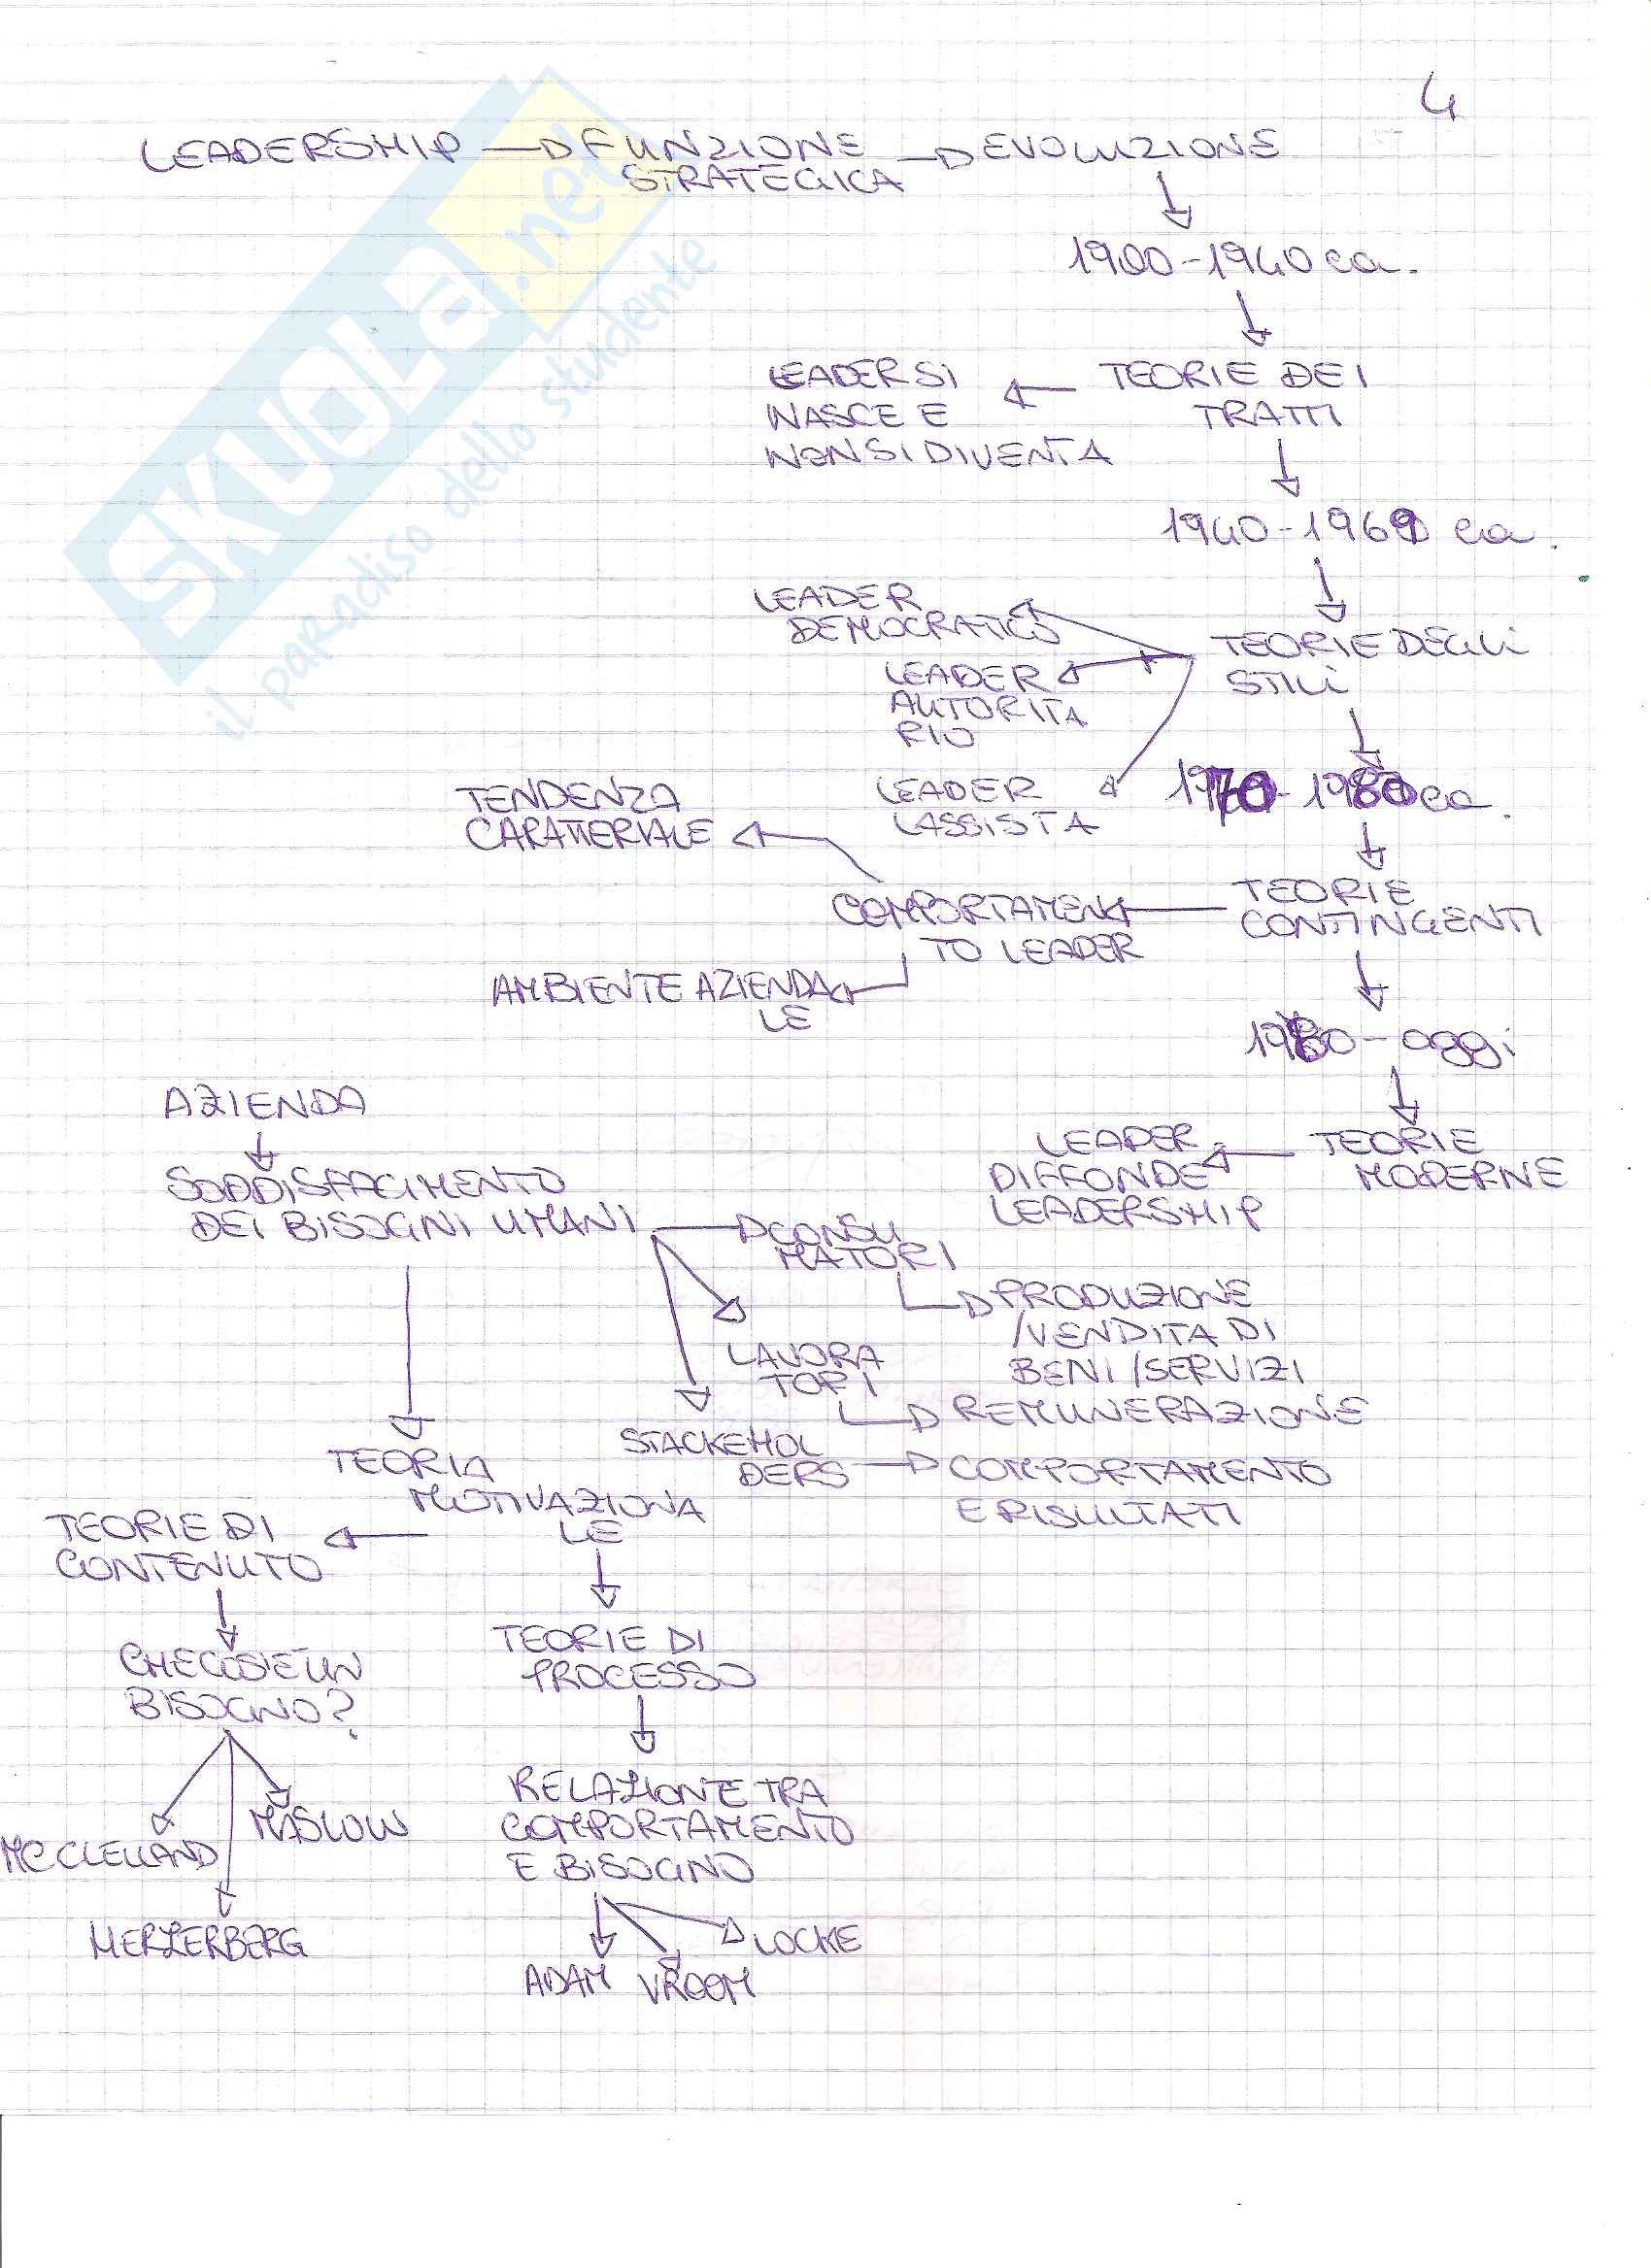 4
LEADERSHIP
FUNZIONE
STRATEGICA
EVOLUZIONE
1900-1940 ca.
TEORIE DEI
TRATTI
LEADER SI
NASCE E
NON SI DIVENTA
1940-1969 ca.
TEORIE DEGLI
STILI
LEADER
DEMOCRATICO
LEADER
AUTORITA
RIO
LEADER
LASSISTA
1970-1980 ca.
TEORIE
CONTINGENTI
COMPORTAMEN
TO LEADER
TENDENZA
CARATTERIALE
AMBIENTE AZIENDA
LE
1980-oggi
TEORIE
MODERNE
LEADER
DIFFONDE
LEADERSHIP
AZIENDA
SODDISFACIMENTO
DEI BISOGNI UMANI
CONSU
MATORI
PRODUZIONE
/VENDITA DI
BENI/SERVIZI
LAVORA
TORI
REMUNERAZIONE
STACKEHOL
DERS
COMPORTAMENTO
E RISULTATI
TEORIA
MOTIVAZIONA
LE
TEORIE DI
CONTENUTO
CHE COS'È UN
BISOGNO?
MC CLELLAND
MASLOW
HERZERBERG
TEORIE DI
PROCESSO
RELAZIONE TRA
COMPORTAMENTO
E BISOGNO
ADAM
VROOM
LOCKE
SKUOLA.net
il paradiso dello studente